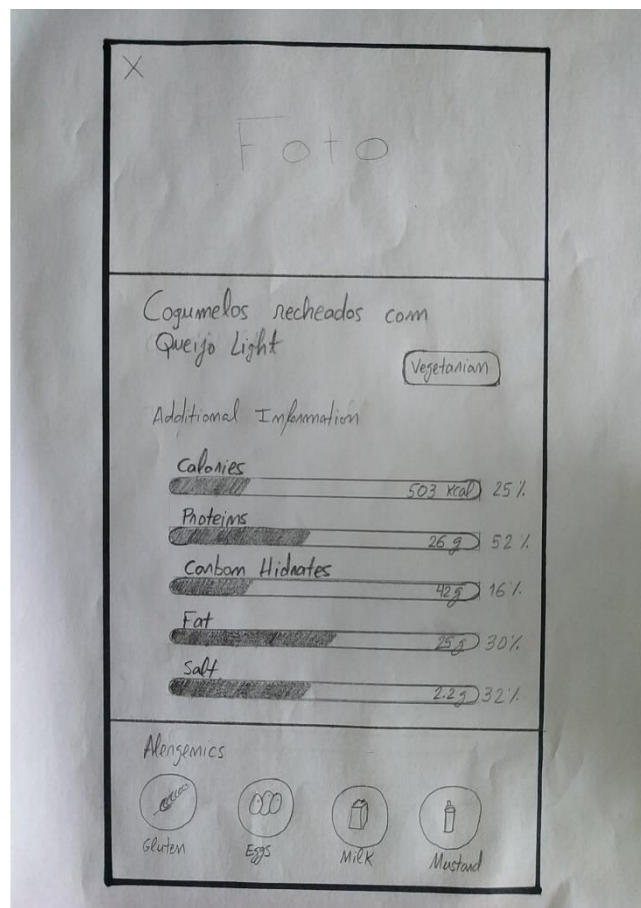 X
Foto
Cogumelos recheados com
Queijo Light
Vegetarian
Additional Information
Calories
503 Kcal 25%
Proteins
26 g 52%
Carbon Hidrates
42g 16%
Fat
25g 30%
Salt
2.2g 32%
Alergenics
Gluten Eggs Milk Mustard